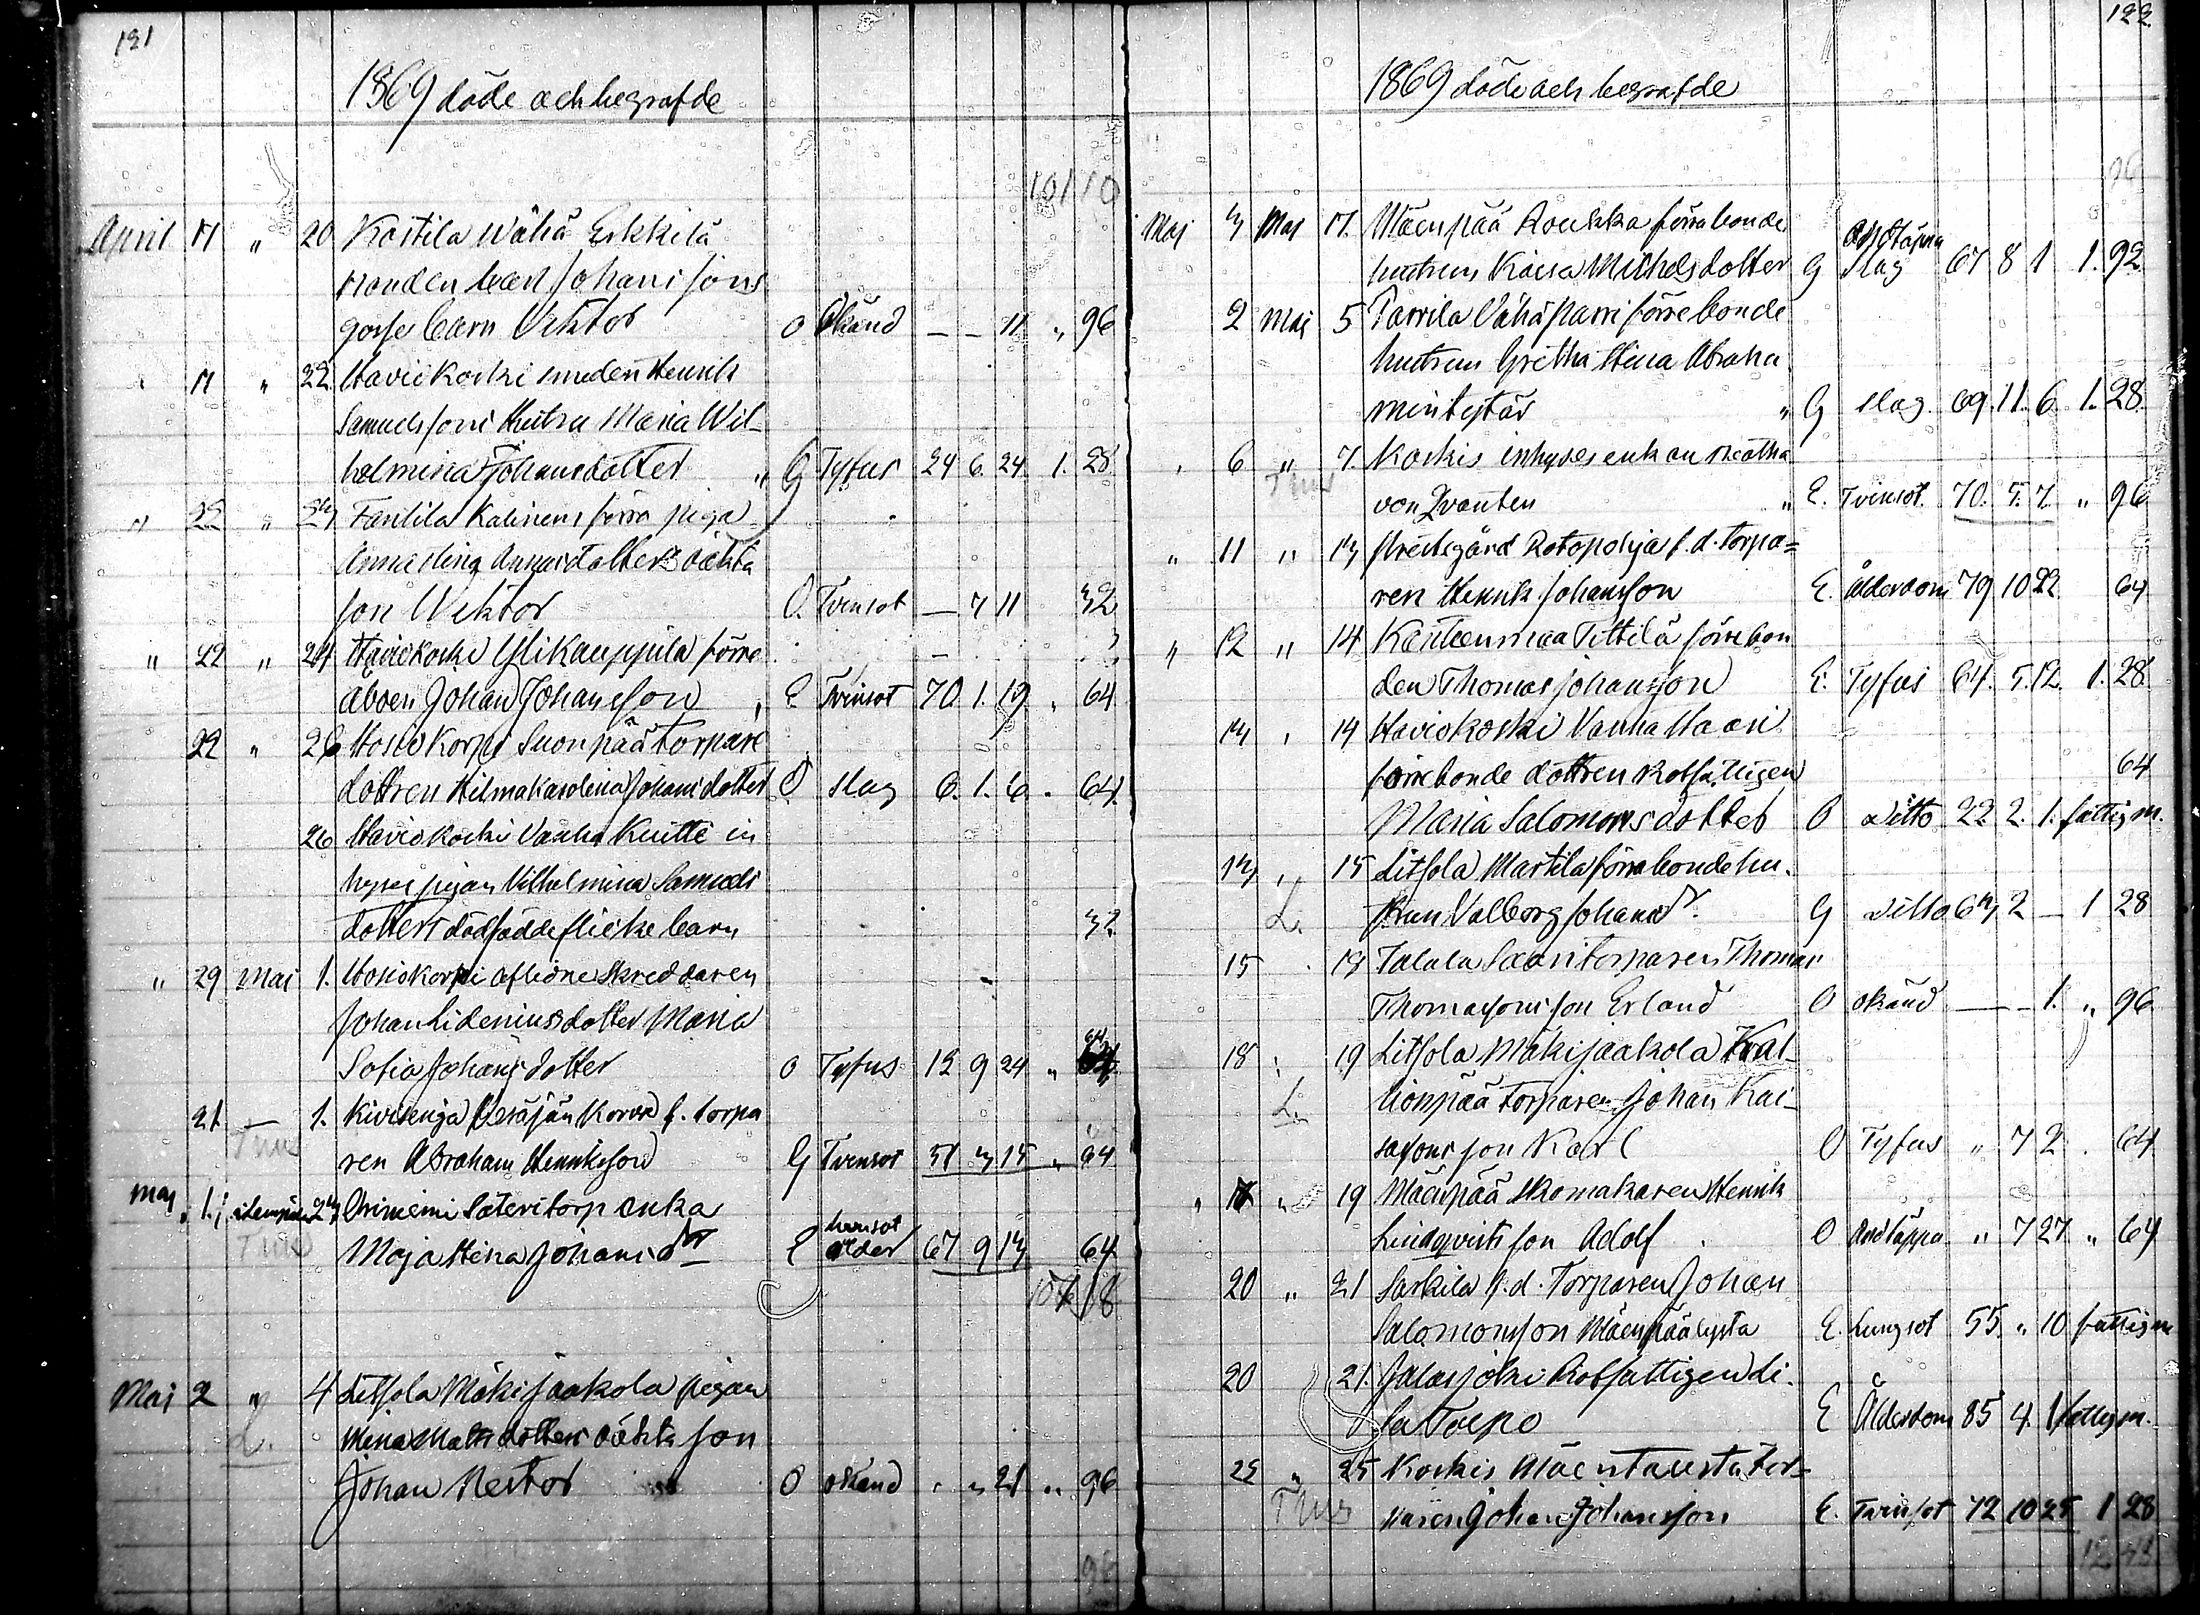 121
1869 döde och begrafde
10/10
April 17 " 20 Kostila Wähä Erkkilä
bonden Carl Johansons
gosse barn Viktor O Okänd — — 11 " 96
" 17 " 22 Haviokoski smeden Henrik
Samuelssons hustru Maria Wil-
helmina Johansdotter " G Tyfus 24 6. 24. 1. 28
" 22 " Fantila förra piga
Anna Stina dotters oäkta
son Wiktor O. Tvinsot — 7 11 32
" 22 " 24 Haviokoski Ylikauppila förre
åboen Johan Johansson E Tvinsot 70. 1. 19 . 64
22 " 26 Hosiokorpi Suonpää torpare
dottren Hilma Karolina Johansdotter O slag 6. 1. 6. . 64.
26 Haviokoski Vanha Knitti in
hyses pigan Vilhelmina Samuels
dotters dödfödde flicke barn 32
" 29 Maj 1. Hosiokorpi aflidne skreddaren
Johan Lidenius dotter Maria
Sofia Johans dotter O Tyfus 12 9 24 " 64
21 — 1. f. torpa
ren Abraham Henriksson G Tvinsot 51 3 15 " 64
Maj 1. Säteritorp enka
Maja Stina Johans dr E Tvinsot ålder 67 9 64
Maj 2 " 4 Litsola Mäkijaakola pigan
L. Mina Mats dotters oäkta son
Johan Nestor O okänd " " 21 " 96
96
122
1869 döde och begrafde
96
Maj 3 Maj 17. Mäenpää Roukka förra bonde
hustrun Kaisa Michelsdotter G Andtäppa Slag 67 8 1 1. 92
2 Maj 5 Parrila Vähäparri förre bonde
hustrun Gretha Stina Abraha
mintytär " G slag 69. 11. 6. 1. 28.
" 6 " 7. Koskis inhyses enkan
von Qvanten " E. Tvinsot. 70. 5. 7. " 96
" 11 " 13 Rotopohja f. d. torpa=
ren Henrik Johansson E. Ålderdom 79 10 22 64
" 12 " 14 Kanteenmaa Pittilä förre bon
den Thomas Johansson E. Tyfus 64. 5. 12. 1. 28
14 Haviokoski Vanha Haari
förre bonde dottren Rotfattigen 64
Maria Salomons dotter O ditto 22 2. 1. fattigm.
13 " 15 Litsola Martila förra bonde hu-
L. strun Valborg Johans dr. G ditto 2 — 1 28
15 . 19 Talala Saari torparen Thomas
Thomassons son Erland O okänd — — 1. " 96
18 . 19 Litsola Mäkijaakola Kal-
L. lionpää torparen Johan Kai-
sasons son Karl O Tyfus " 7 2 . 64
" 17 " 19 Mäenpää skomakaren Henrik
Lindqvists son Adolf O Andtäppa " 7 27 " 64
20 " 21 Sarkila f. d. Torparen Johan
Salomonsson Mäenpäälystä E. Lungsot 55 " 10 fattigm
20 21. Jalasjoki Rotfattigen Li-
sa Toepo E Ålderdom 85 4. 1 fattigm.
23 " 25 Koskis Mäentausta tor-
paren Johan Johansson E. Tvinsot 72 10 25 1 28